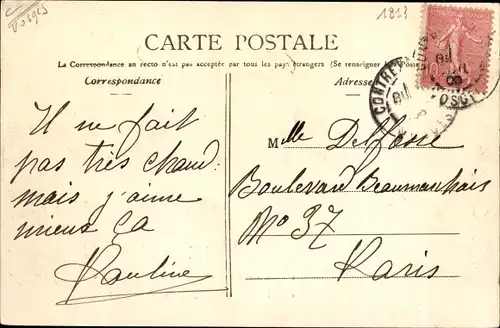 Vosges
1813
CARTE POSTALE
La Correspondance au recto n'est pas acceptée par tous les pays étrangers (Se renseigner à la Poste)
Correspondance
Adresse
CONTREX
VOSGES
Il ne fait
pas très chaud
mais j'aime
mieux ça
Pauline
Melle Delfosse
Boulevard Beaumarchais
No 37
Paris